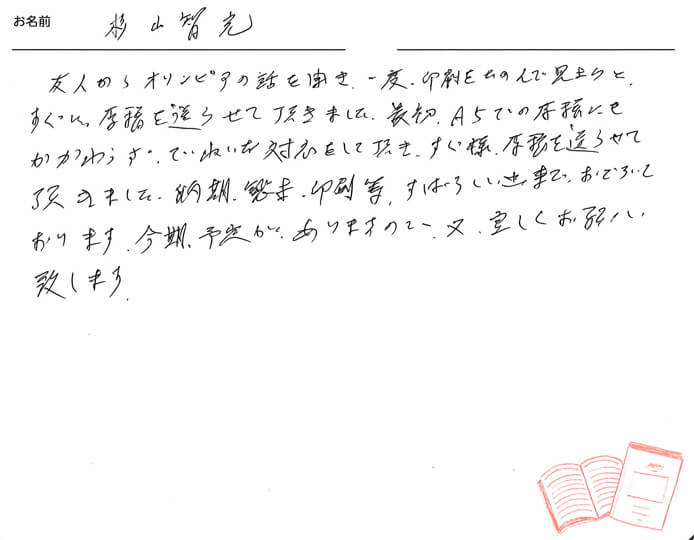 お名前 杉山智充
友人からオリンピアの話を聞き、一度、印刷をたのんで見ようと、
すぐに、原稿を送らせて頂きました。最初、A5での原稿にも
かかわらず、ていねいな対応をして頂き、すぐ様、原稿を送らせて
頂きました。納期、製本、印刷等、すばらしい出来で、おどろいて
おります。今期、予定が、ありますので、又、宜しくお願い
致します。